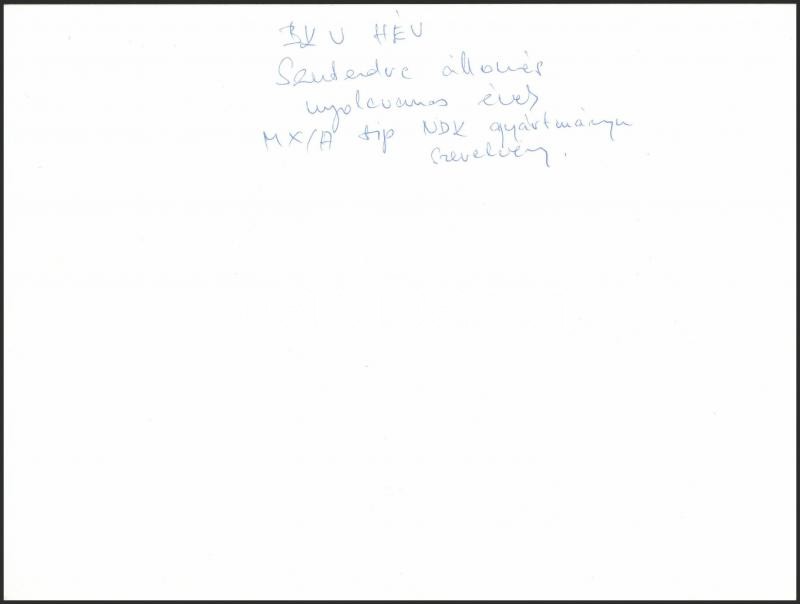 BKV HÉV
Szentendre állomás
nyolcvanas évek
MX/A tip NDK gyártmányu
szerelvény.